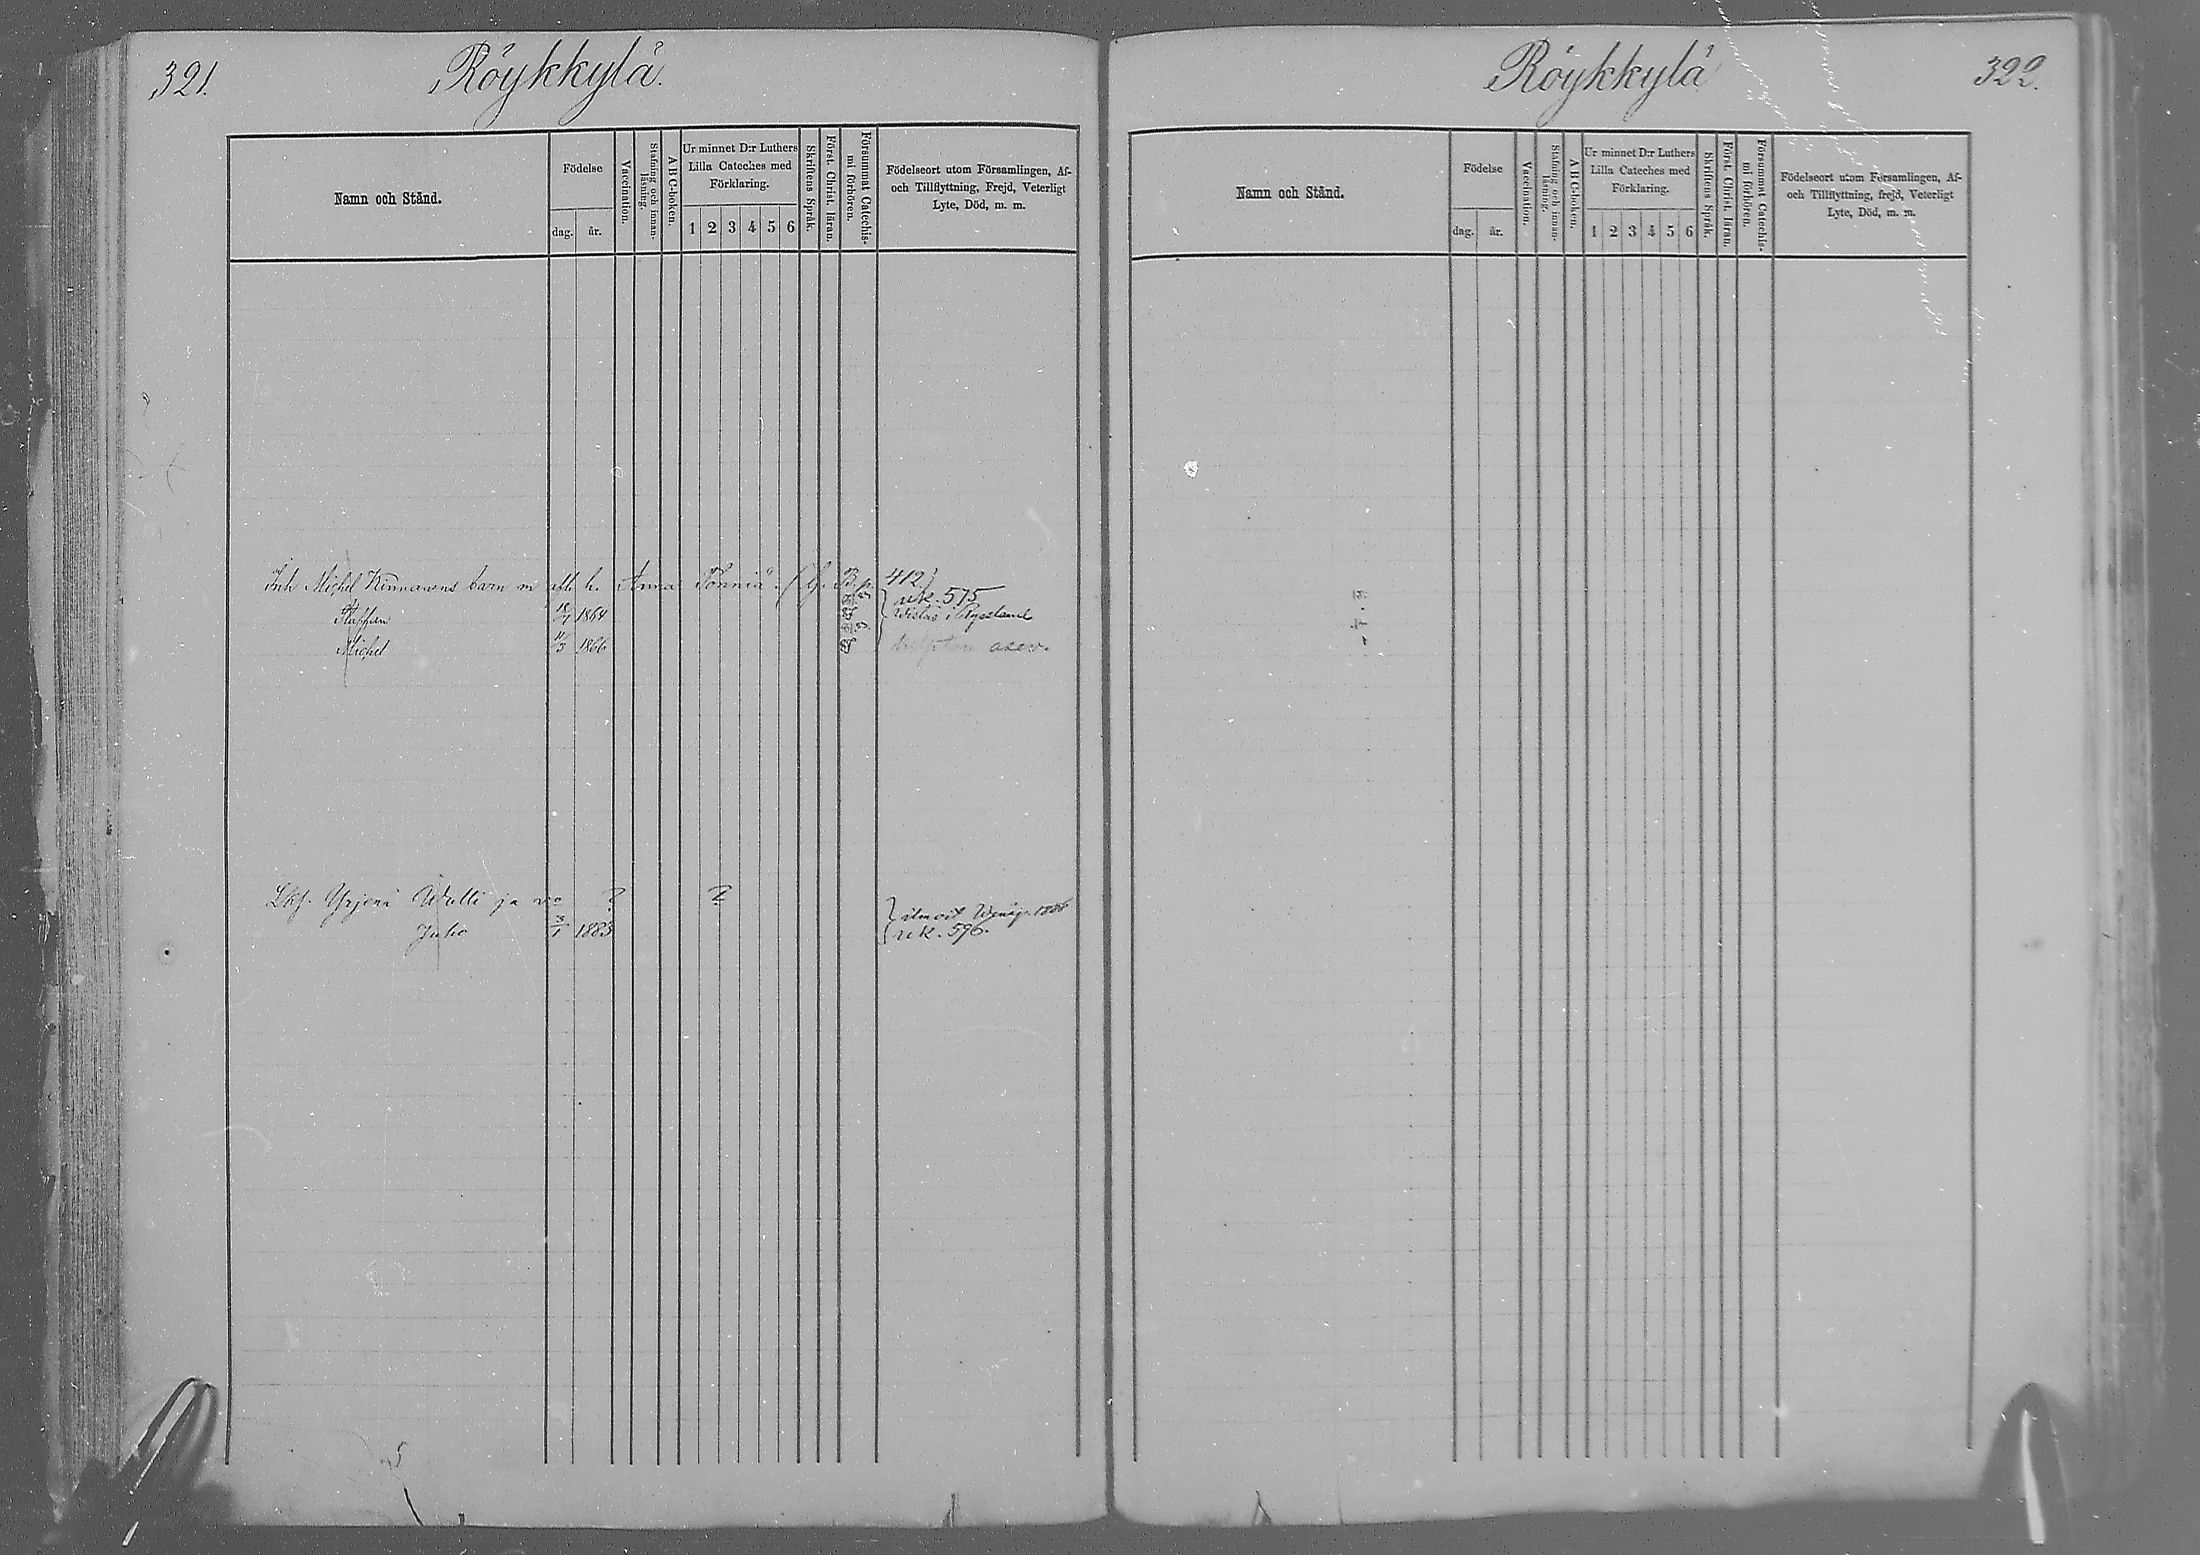 321.
Röykkylä.
Namn och Stånd.
Födelse
dag.
år.
Vaccination.
Stafning och innan-
läsning.
A B C-boken.
Ur minnet D:r Luthers
Lilla Cateches med
Förklaring.
1 2 3 4 5 6
Skriftens Språk.
Först. Christ. läran.
Försummat Catechis-
mi förhören.
Födelseort utom Församlingen, Af-
och Tillflyttning, Frejd, Veterligt
Lyte, Död, m. m.
Inh Michel Kinnanens barn m afl. h. Anna Tönniä 412)
Staffan 18/7 1864
Michel 11/3 1866
rik. 575
Wistas i Ryssland
Yrjönä Wulli ja vo ? ?
Juho 3/1 1883
ilmoit
rik. 596.
Röykkylä
322.
Namn och Stånd.
Födelse
dag.
år.
Vaccination.
Stafning och innan-
läsning.
A B C-boken.
Ur minnet D:r Luthers
Lilla Cateches med
Förklaring.
1 2 3 4 5 6
Skriftens Språk.
Först. Christ. läran.
Försummat Catechis-
mi förhören.
Födelseort utom Församlingen, Af-
och Tillflyttning, frejd, Veterligt
Lyte, Död, m. m.